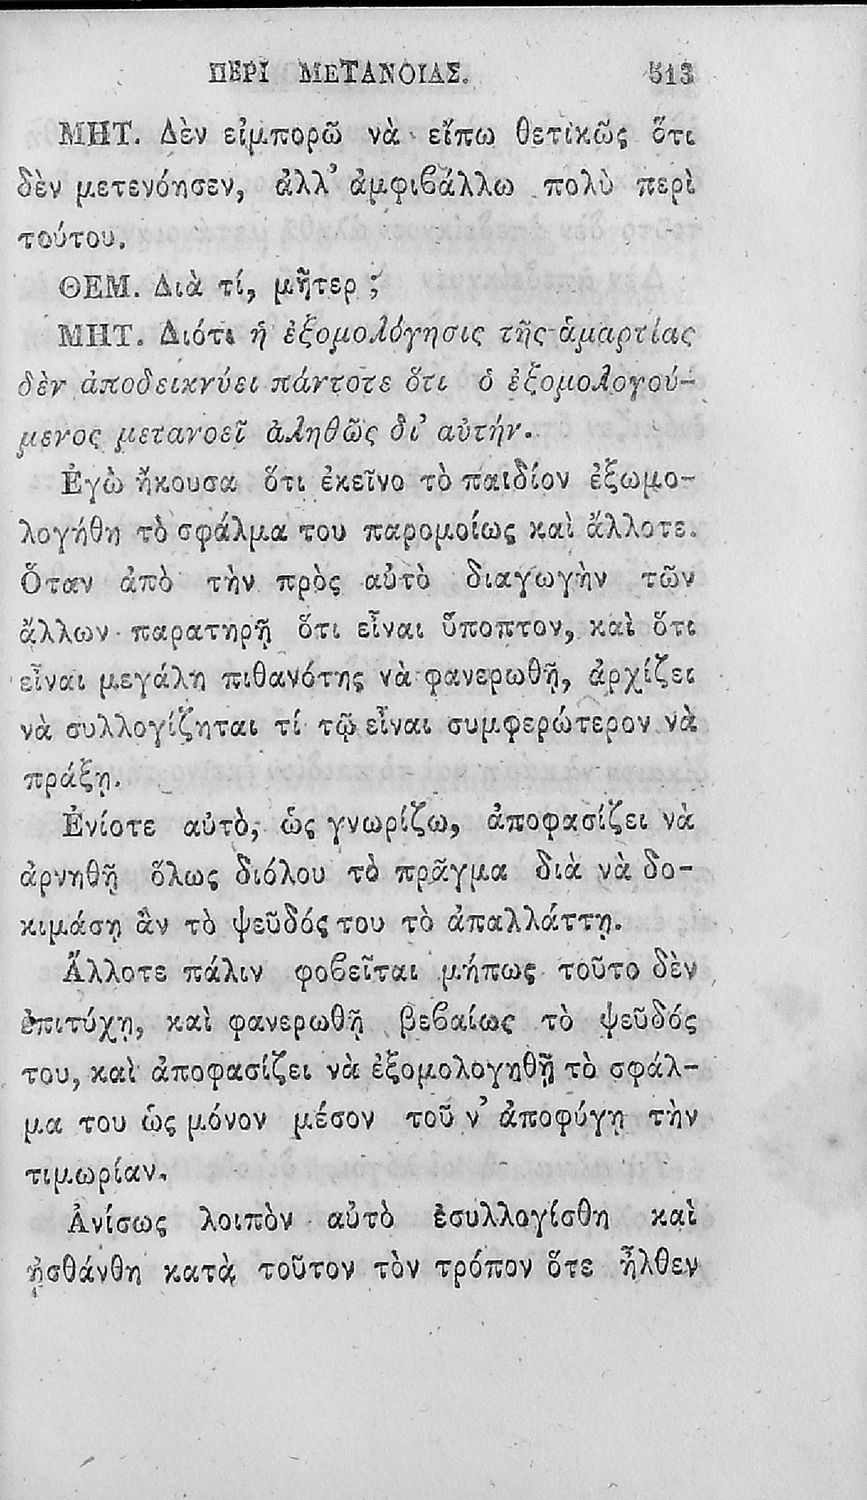 ΠΕΡΙ ΜΕΤΑΝΟΙΑΣ. 513
ΜΗΤ. Δὲν εἰμπορῶ νὰ εἴπω θετικῶς ὅτι
δὲν μετενόησεν, ἀλλ’ ἀμφιβάλλω πολὺ περὶ
τούτου.
ΘΕΜ. Διὰ τί, μῆτερ ;
ΜΗΤ. Διότι ἡ ἐξομολόγησις τῆς ἁμαρτίας
δὲν ἀποδεικνύει πάντοτε ὅτι ὁ ἐξομολογού-
μενος μετανοεῖ ἀληθῶς δι’ αὐτήν.
Ἐγὼ ἤκουσα ὅτι ἐκεῖνο τὸ παιδίον ἐξωμο-
λογήθη τὸ σφάλμα του παρομοίως καὶ ἄλλοτε.
Ὅταν ἀπὸ τὴν πρὸς αὐτὸ διαγωγὴν τῶν
ἄλλων παρατηρῇ ὅτι εἶναι ὕποπτον, καὶ ὅτι
εἶναι μεγάλη πιθανότης νὰ φανερωθῇ, ἀρχίζει
νὰ συλλογίζηται τί τῷ εἶναι συμφερώτερον νὰ
πράξῃ.
Ἐνίοτε αὐτὸ, ὡς γνωρίζω, ἀποφασίζει νὰ
ἀρνηθῇ ὅλως διόλου τὸ πρᾶγμα διὰ νὰ δο-
κιμάσῃ ἂν τὸ ψεῦδός του τὸ ἀπαλλάττῃ.
Ἄλλοτε πάλιν φοβεῖται μήπως τοῦτο δὲν
ἐπιτύχῃ, καὶ φανερωθῇ βεβαίως τὸ ψεῦδός
του, καὶ ἀποφασίζει νὰ ἐξομολογηθῇ τὸ σφάλ-
μα του ὡς μόνον μέσον τοῦ ν’ ἀποφύγῃ τὴν
τιμωρίαν.
Ἀνίσως λοιπὸν αὐτὸ ἐσυλλογίσθη καὶ
ᾐσθάνθη κατὰ τοῦτον τὸν τρόπον ὅτε ἦλθεν